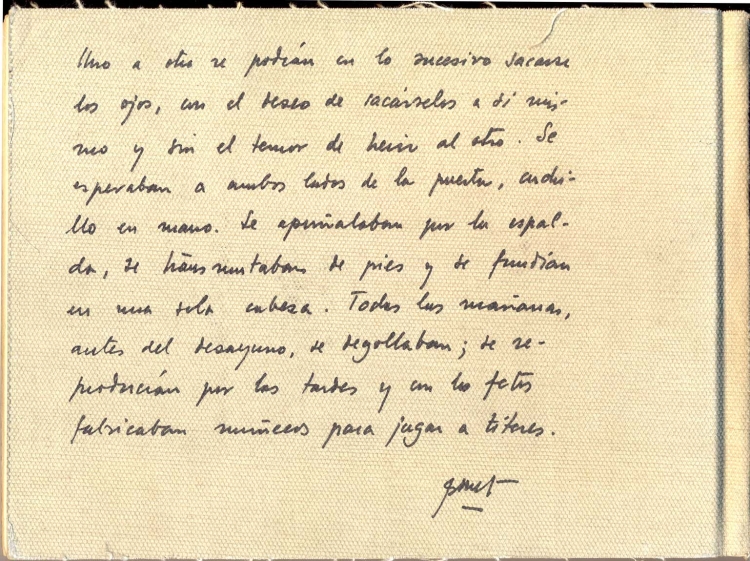 Uno a otro se podían en lo sucesivo sacarse
los ojos, con el deseo de sacárselos a sí mis-
mo y sin el temor de herir al otro. Se
esperaban a ambos lados de la puerta, cuchi-
llo en mano. Se apuñalaban por la espal-
da, se transmutaban de pies y se fundían
en una sola cabeza. Todas las mañanas,
antes del desayuno, se degollaban; se re-
producían por las tardes y con los fetos
fabricaban muñecos para jugar a títeres.